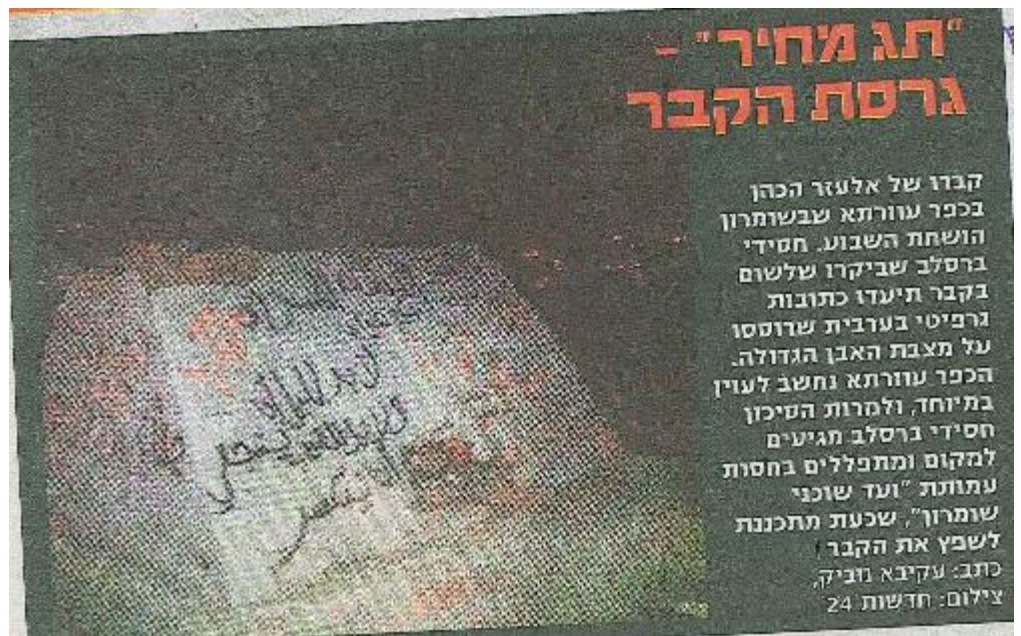 "תג מחיר" -
גרסת הקבר
קברו של אלעזר הכהן
בכפר עוורתא שבשומרון
הושחת השבוע. חסידי
ברסלב שביקרו שלשום
בקבר תיעדו כתובות
גרפיטי בערבית שרוססו
על מצבת האבן הגדולה.
הכפר עוורתא נחשב לעוין
במיוחד, ולמרות הסיכון
חסידי ברסלב מגיעים
למקום ומתפללים בחסות
עמותת "ועד שוכני
שומרון", שכעת מתכננת
לשפץ את הקבר
כתב: עקיבא נוביק,
צילום: חדשות 24